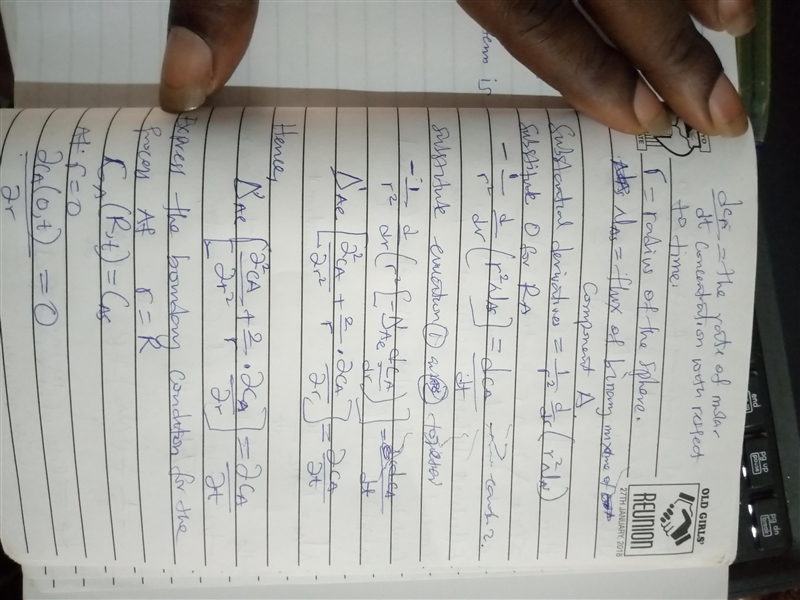 OLD GIRLS'
REUNION
27TH JANUARY, 2018
dCA = the rate of molar
dt concentration with respect
to time.
r = radius of the sphere.
NAS = flux of binary mixture of
Component A.
Substantial derivatives = 1/r² d/dr (r²NA)
Substitute 0 for RA
- 1/r² d/dr (r²NAS) = dCA/dt ... 2.
Substitute equation ① ② together
- 1/r² d/dr (r² [-DAe dCA/dr]) = dCA/dt
DAe [∂²CA/∂r² + 2/r . ∂CA/∂r] = ∂CA/∂t
Hence,
DAe [∂²CA/∂r² + 2/r . ∂CA/∂r] = ∂CA/∂t
Express the boundary condition for the
process At r = R
CA (R,t) = CAS
At r = 0
∂CA(0,t)/∂r = 0
end
pg up
pg dn